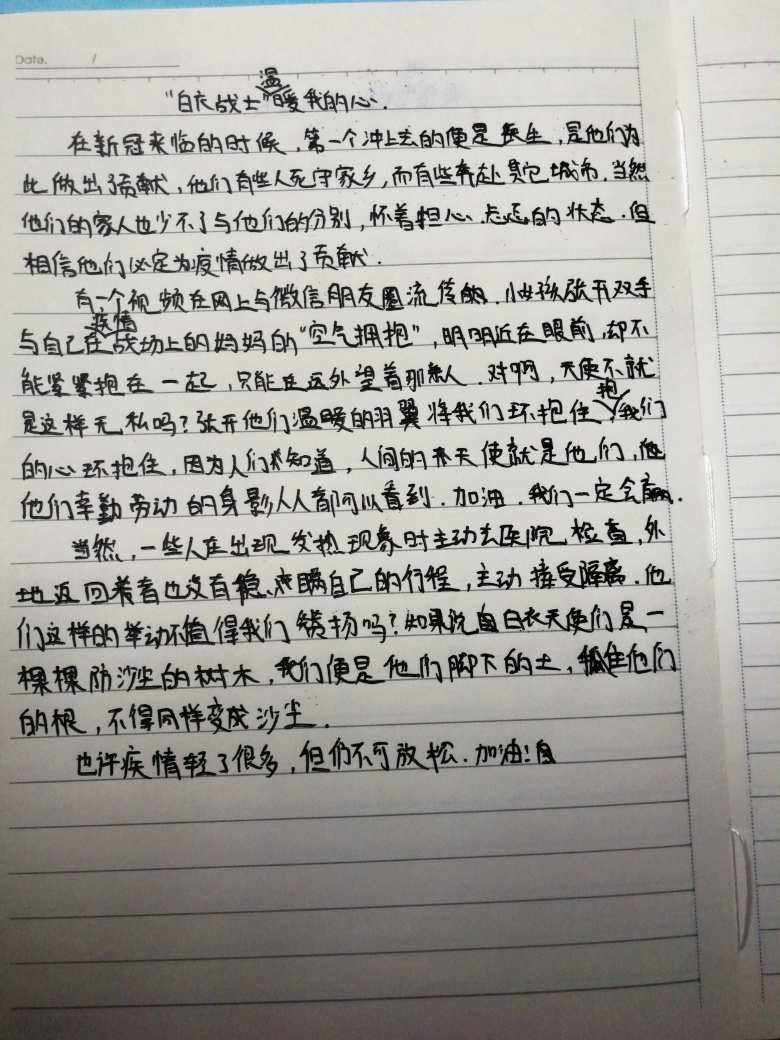 Date. /
"白衣战士"温暖我的心.
在新冠来临的时候,第一个冲上去的便是医生,是他们为
此做出了贡献,他们有些人死守家乡,而有些奔赴其它城市.当然
他们的家人也少不了与他们的分别,怀着担心.忐忑的状态.但
相信他们必定为疫情做出了贡献.
有一个视频在网上与微信朋友圈流传的.小女孩张开双手
与自己在疫情战场上的妈妈的"空气拥抱",明明近在眼前,却不
能紧紧抱在一起,只能在远外望着那亲人.对啊,天使不就
是这样无私吗?张开他们温暖的羽翼将我们环抱住,抱我们
的心环抱住,因为人们知道,人间的天使就是他们,他
他们辛勤劳动的身影人人都可以看到.加油.我们一定会赢.
当然,一些人在出现发热现象时主动去医院检查,外
地返回者也没有瞒自己的行程,主动接受隔离.他
们这样的举动不值得我们赞扬吗?如果说白衣天使们是一
棵棵防沙尘的树木,我们便是他们脚下的土,抓住他们
的根,不得同样变成沙尘.
也许疾情轻了很多,但仍不可放松.加油!自